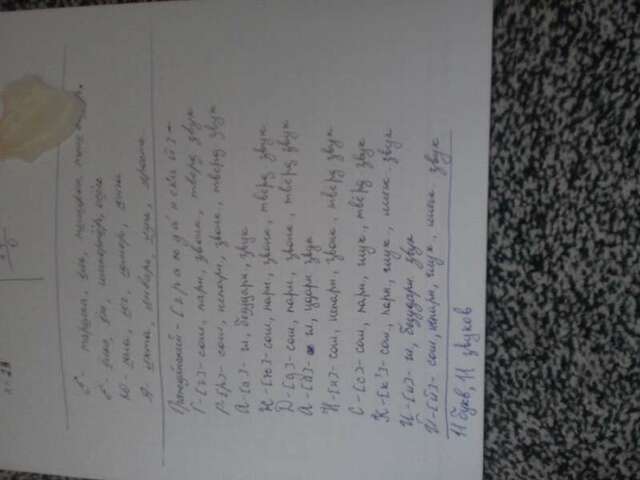 х=23
0
Е-
Ё- ёлка, ёж,
Ю- юла, юг, юмор, юнга
Я- яхта, январь,
Гражда́нский - [г р а ж д а́ н с к' и й] -
Г-[г]- согл, парн, звонк, тверд звук
Р-[р]- согл, непарн, звонк, тверд звук
А-[а]- гл, безударн, звук
Ж-[ж]- согл, парн, звонк, тверд звук
Д-[д]- согл, парн, звонк, тверд звук
А-[а́]- гл, ударн звук
Н-[н]- согл, непарн, звонк, тверд звук
С-[с]- согл, парн, глух, тверд звук
К-[к']- согл, парн, глух, мягк. звук
И-[и]- гл, безударн. звук
Й-[й]- согл, непарн, глух, мягк. звук
11 букв, 11 звуков